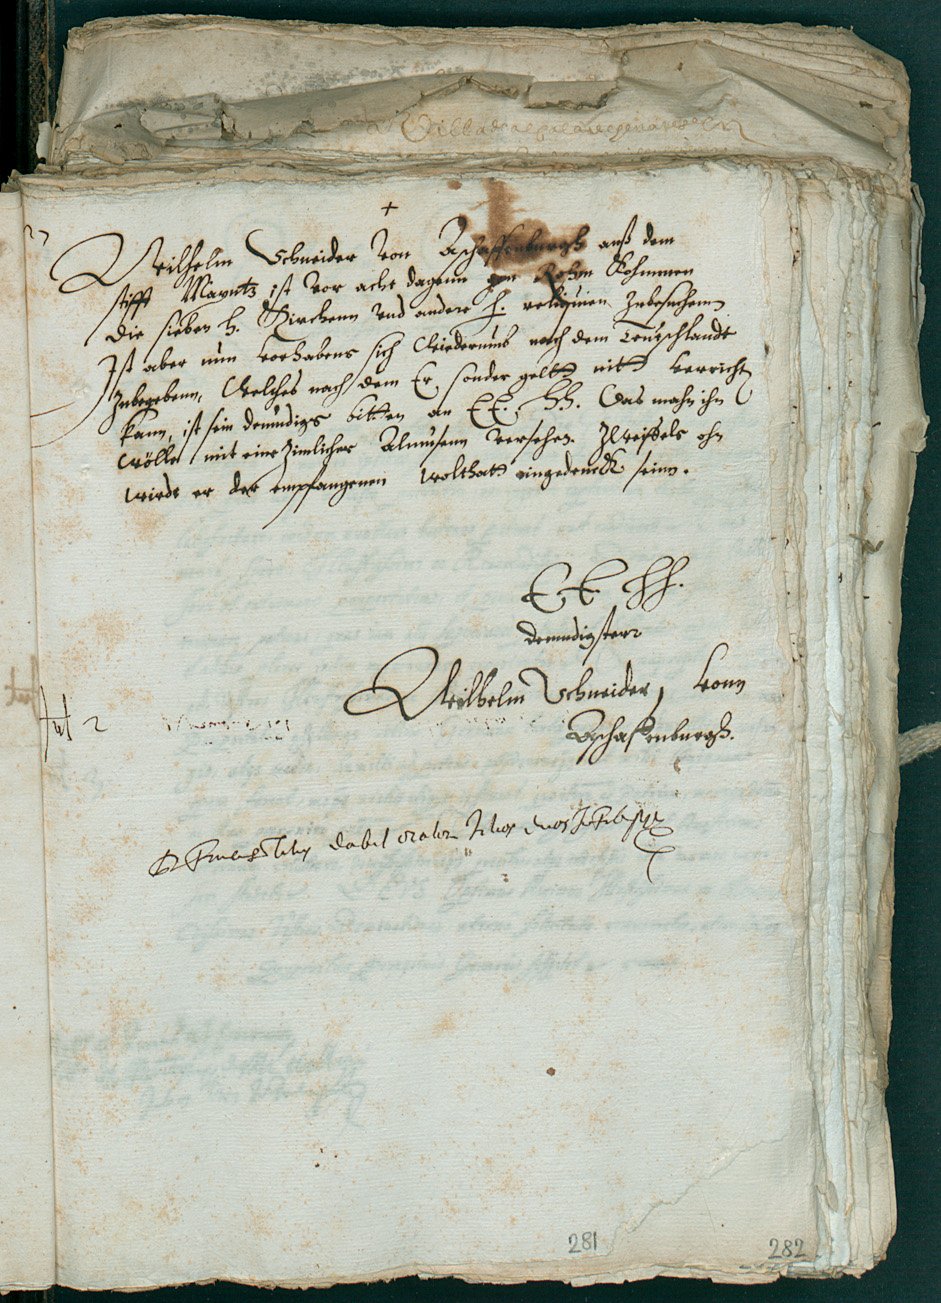 +
Wilhelm Schneider von Aschaffenburgk auß dem
stifft Mayntz ist vor acht dagenn gen Rohm Kohmmen
die sieben h. Kirchenn vnd andere h. reliquien Zubesuchenn
Ist aber nun vorhabens sich Wiederumb nach dem Teutschlandt
Zubegebenn, Welches nach dem Er, sonder geltt nitt verrichten
kann, ist sein demüdigs bitten an E E. HH. Das mahn ihn
wölle mit einer Zimlicher Almusenn versehen. Zweiffels ohn
wirdt er der empfangenen wolthatt eingedenck sein.
E. E. HH.
demüdigster
Wilhelm Schneider, vonn
Aschaffenburgk.
dabit oratori Julios duos
281
282